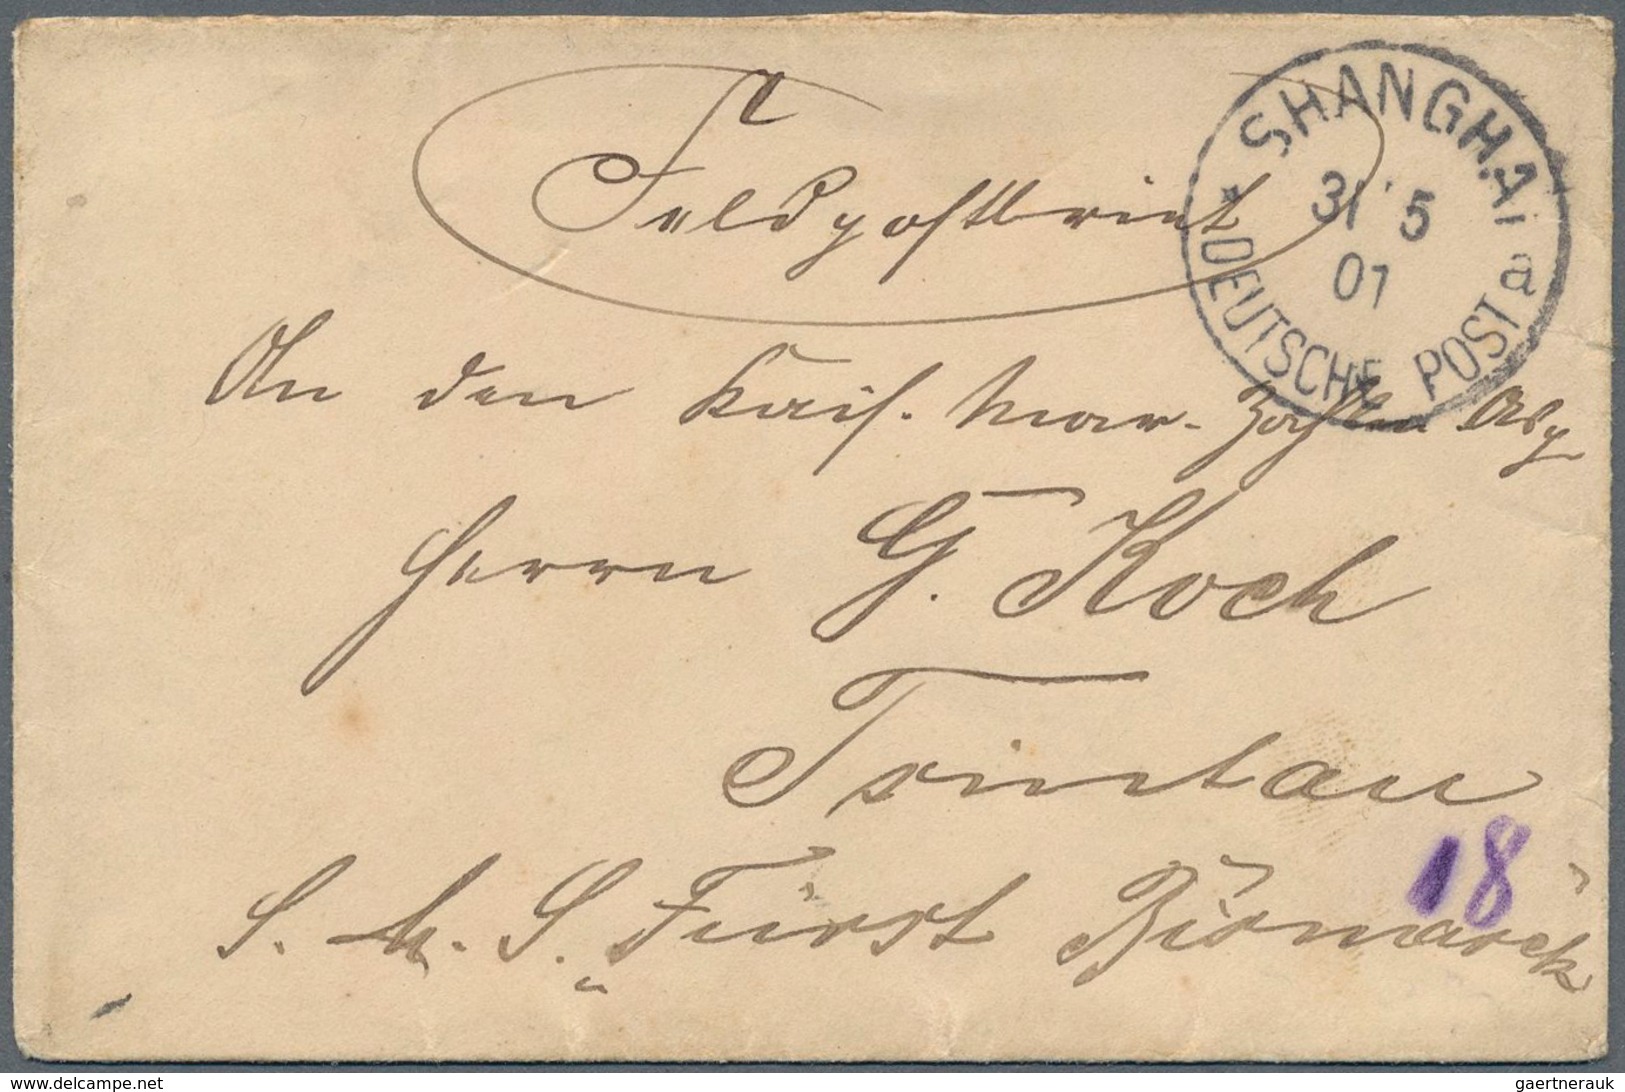 Feldpostbrief
SHANGHAI
31 5
01
a
* DEUTSCHE POST
An den Kais. Mar. Zahlm. Asp
Herrn G. Koch
Tsintau
S. M. S. „Fürst Bismarck
18
www.delcampe.net
gaertnerauk